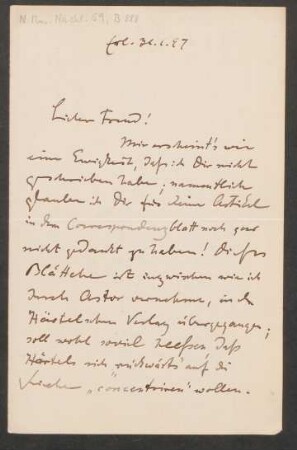 N. Mus. Nachl. 59, B 
Lieber Freund!
Mir erscheint's wie
eine Ewigkeit, daß ich Dir nicht
geschrieben habe; namentlich
glaube ich Dir für Deine Artikel
in dem Correspondenzblatt noch gar
nicht gedankt zu haben! Dieses
Blättchen ist inzwischen wie ich
durch Astor vernehme, in den
Härtelschen Verlag übergegangen;
soll wohl soviel heißen daß
Härtels sich „rückwärts" auf die
Kirche „concentriren" wollen.